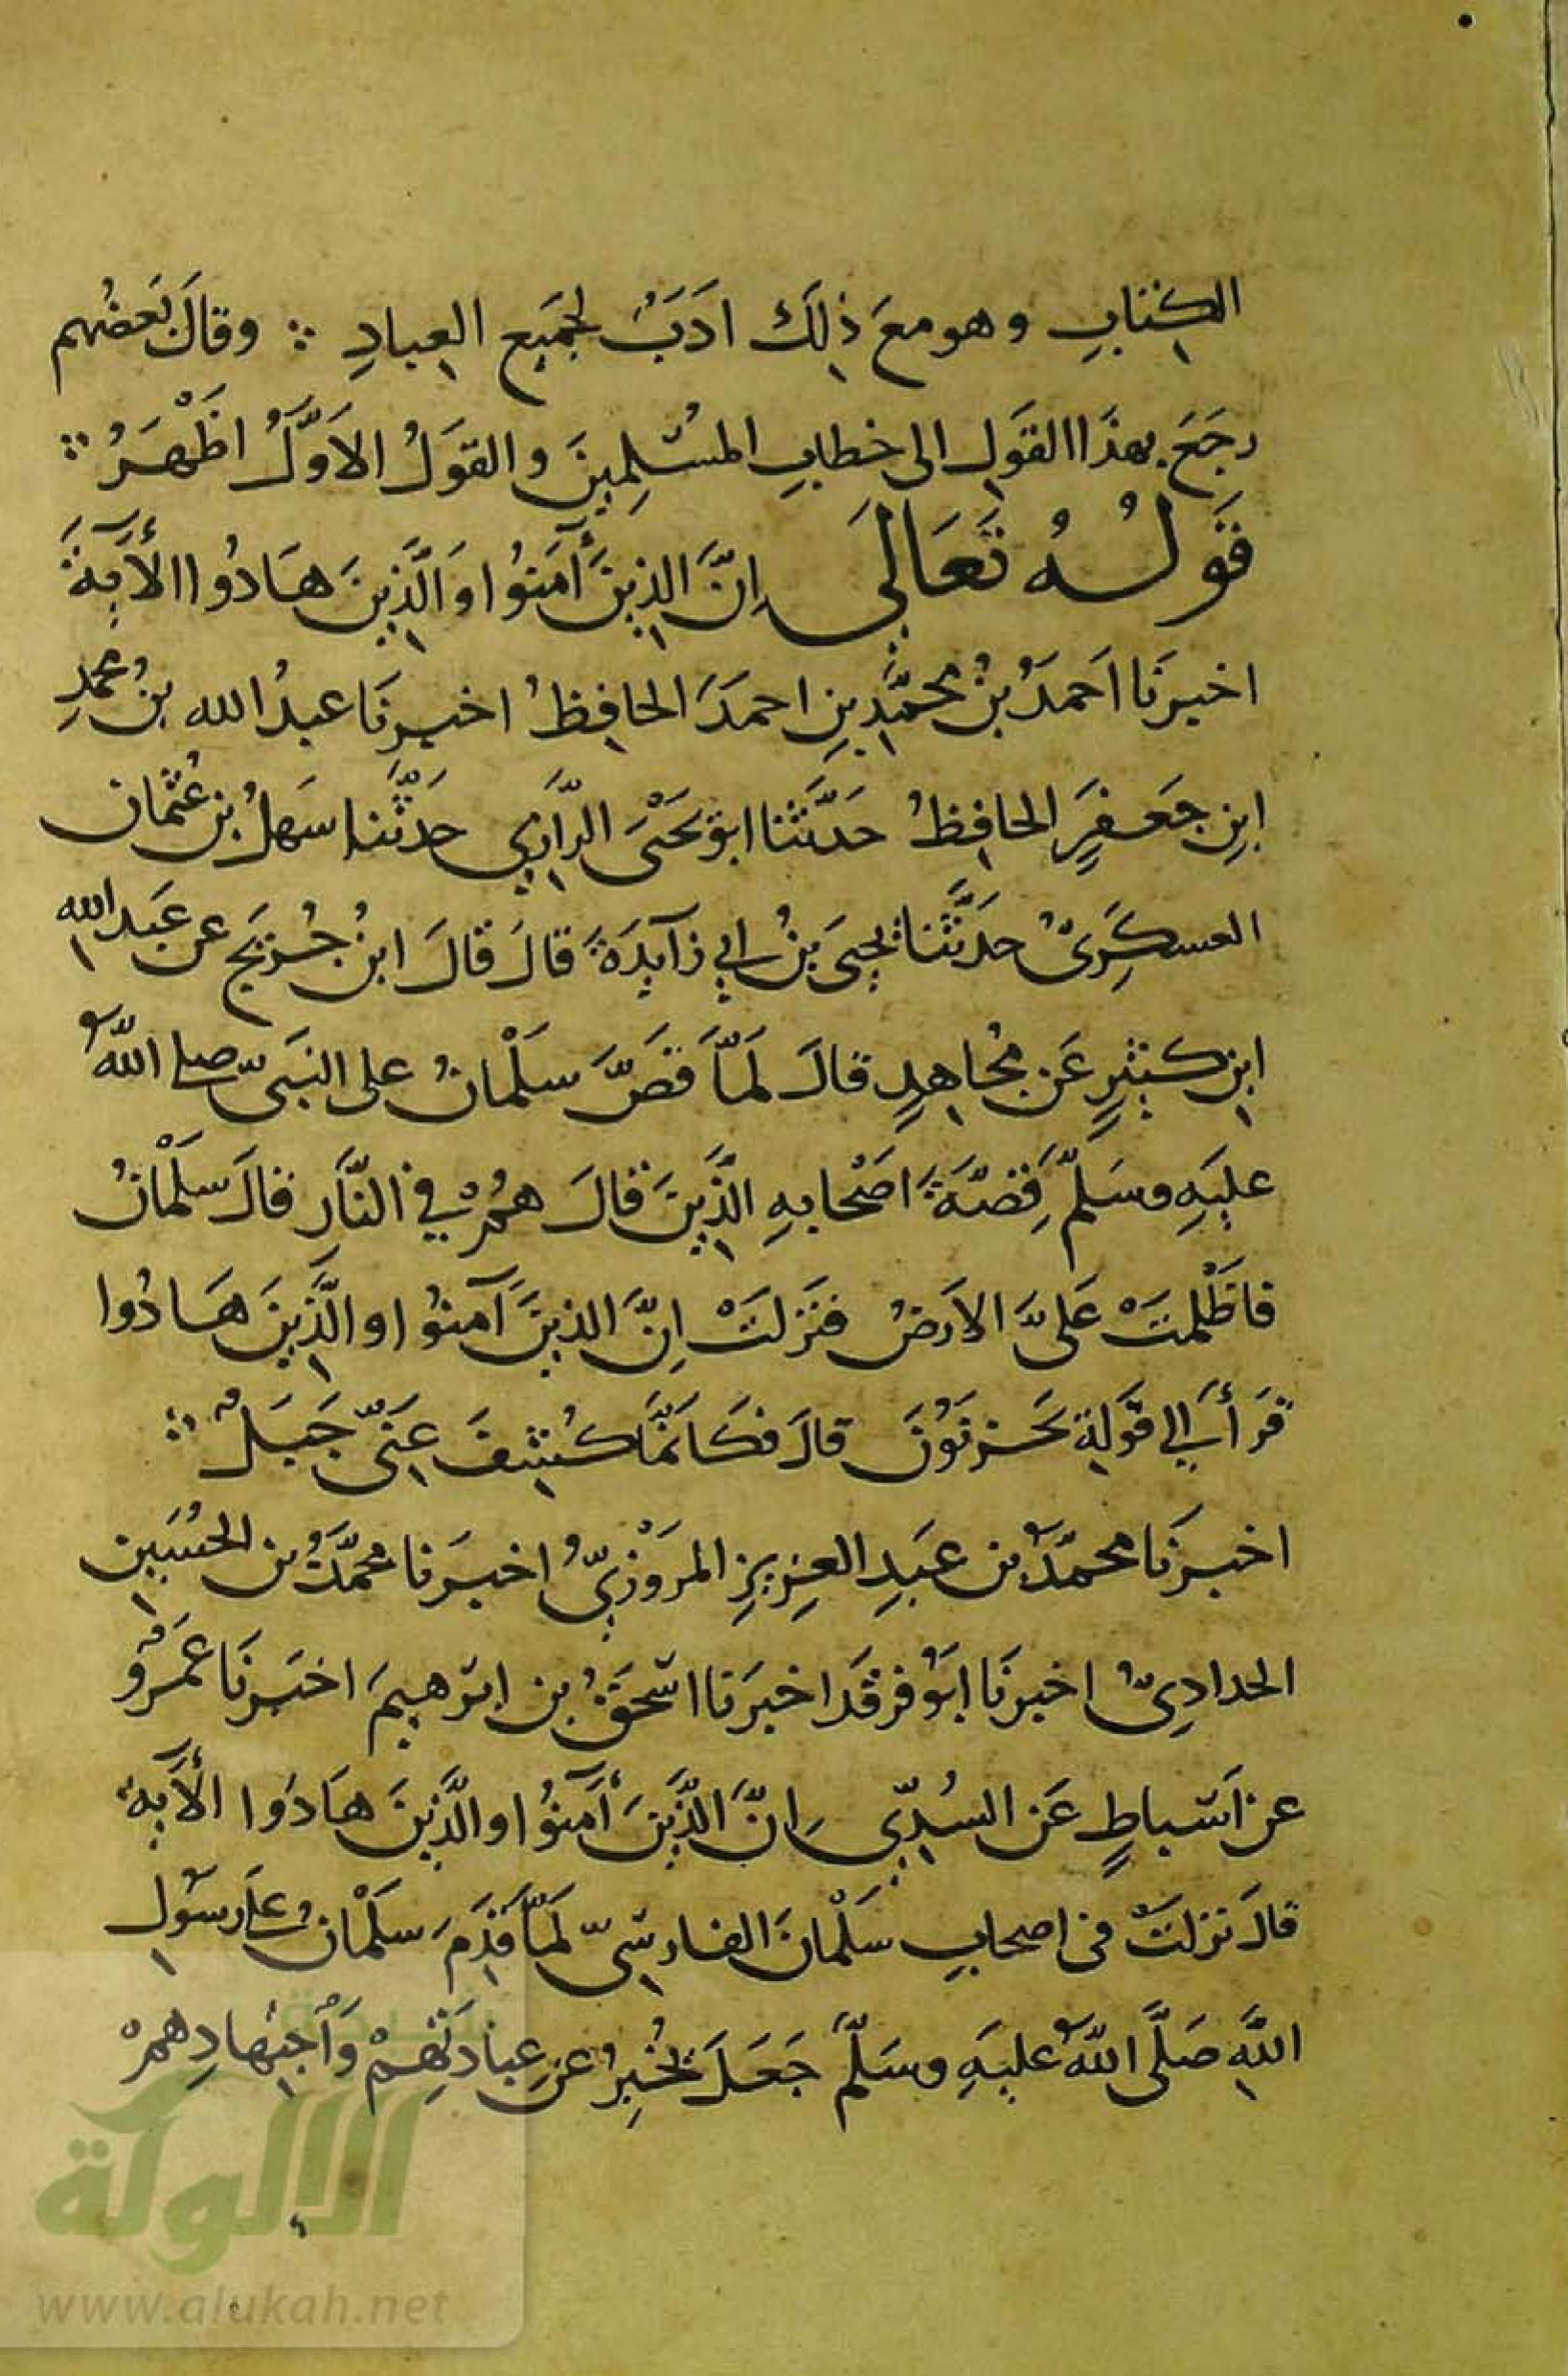 الكتابِ وهو معَ ذلِكَ ادَبٌ لجَميع العِبادِ ؞ وقالَ بَعضُهم
رجَعَ بهذَا القَولِ الى خطابِ المسْلِمينَ والقولُ الاَوَّلُ اظْهَرُ ؞
قَولُهُ تَعَالَى اِنَّ الذِينَ أٓمَنُوا وَالَّذِينَ هَادُوا الأٓيةَ
اخبرنَا اَحمَدُ بنُ محمَّدِ بنِ احمدَ الحافِظُ اخبرنَا عبدُ الله بنُ محمدِ
ابنِ جَعفرٍ الحافِظُ حَدَّثَنا ابو يَحْيَى الرَّازِي حَدَّثَنا سَهلُ بن عُثمَان
العسكَرِىُّ حَدَّثَنا يحيىَ بنُ ابي زآيِدَةَ قالَ قالَ ابنُ جُرَيج عن عَبدِ الله
ابنِ كَثيرٍ عَن مُجاهِدٍ قالَ لَمّاَ قصَّ سَلْمانُ على النبَىّ صلى اللهُ
عليَهِ وسَلمَّ قِصَّةَ اصْحابهِ الذَّينَ قالَ همُْ في النَّارِ قالَ سَلْمانُ
فاظْلمَتْ عَلَىَّ الاَرضُ فنَزلَتْ اِنَّ الذينَ آمنوُا والَّذِينَ هَادُوا
قرَأ الي قَولهِ يَحزنوُنَ قالَ فكَانَمَّا كُشِفَ عَنّي جَبَلٌ ؞
اخبرنَا محمَّدُ بن عَبدِ العِزيزِ المَروْزِيُّ اخبرَنا محمَّدُ بن الحُسَينِ
الحدادِىُّ اخبرنَا ابوُ فرقَد اخبرَنا اسْحقُ بن ابرَهيمَ اخبَرنَا عَمرٌو
عن اَسْباطٍ عَن السُدّيِ اِنَّ الذَّينَ أٓمَنوُا والَّذينَ هَادَوا الأٓيةَ
قالَ نزلَتْ فى اصحابِ سَلْمانَ الفارسِىّ لَمّاَ قدِمَ سَلْمانُ عَلى رسَولِ
اللهِ صَلَّى اللهُ عليَهِ وسَلَّمَ جَعَلَ يُخبِرُ عَن عِبادَتِهِمْ وَاْجتِهادِهمْ
الألوكة
www.alukah.net